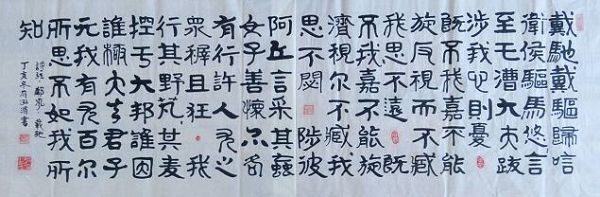 戴馳戴驅歸唁
衛侯驅馬悠言
至于漕大夫跋
涉我心則憂
既不我嘉不能
旋反視而不臧
我思不遠 既
不我嘉不能旋
濟視尔不臧我
思不閟 陟彼
阿丘言采其蝱
女子善懷亦各
有行許人尤之
衆穉且狂 我
行其野芃其麦
控于大邦誰因
誰極大夫君子
无我有尤百尔
所思不如我所
知
詩經 鄘風 載馳
丁亥冬月 書